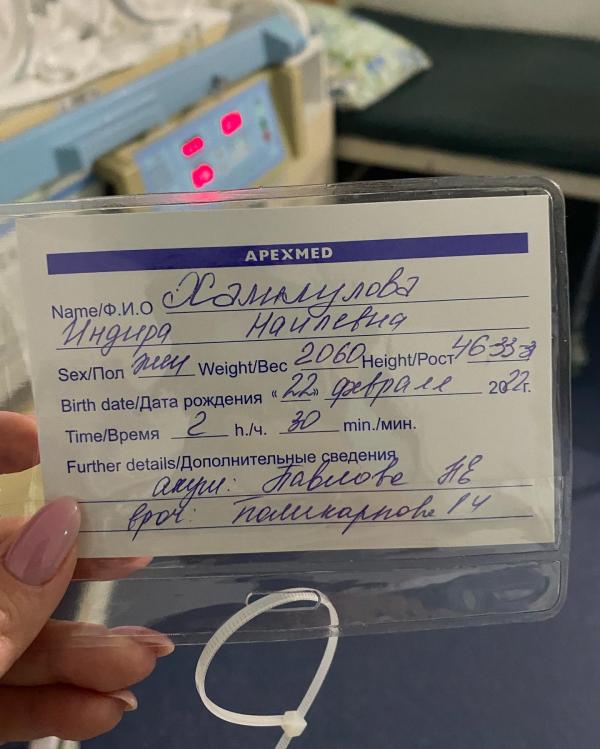 APEXMED
Name/Ф.И.О
Индира Наилевна
Sex/Пол жен Weight/Вес 2060 Height/Рост 46 33
Birth date/Дата рождения «22» февраля 2022г.
Time/Время 2 h./ч. 30 min./мин.
Further details/Дополнительные сведения
акуш: Павлова НЕ
врач: поликарпова